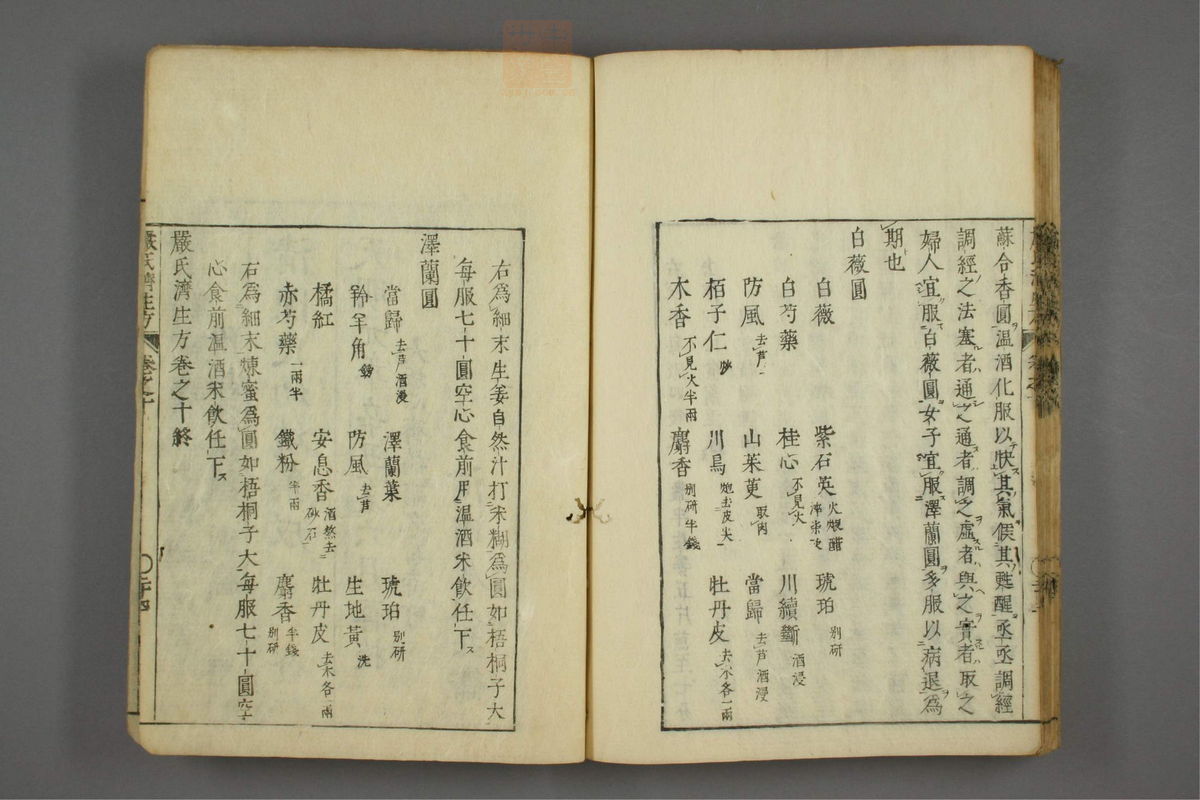 蘇合香圓溫酒化服以快其氣候其甦醒亟亟調經
調經之法塞者通之通者調之虛者與之實者取之
婦人宜服白薇圓女子宜服澤蘭圓多服以病退爲
期也
白薇圓
白薇 紫石英火煅醋淬 琥珀別研
白芍藥 桂心不見火 川續斷酒浸
防風去芦 山茱萸取肉 當歸去芦酒浸
栢子仁炒 川烏炮去皮尖 牡丹皮去木各一兩
木香不見火半兩 麝香別研半錢
右爲細末生姜自然汁打米糊爲圓如梧桐子大
每服七十圓空心食前用溫酒米飲任下
澤蘭圓
當歸去芦酒浸 澤蘭葉 琥珀別研
羚羊角鎊 防風去芦 生地黃洗
橘紅 安息香酒熬去砂石 牡丹皮去木各一兩
赤芍藥一兩半 鐵粉半兩 麝香半錢別研
右爲細末煉蜜爲圓如梧桐子大每服七十圓空
心食前溫酒米飲任下
嚴氏濟生方卷之十終
嚴氏濟生方 卷之十